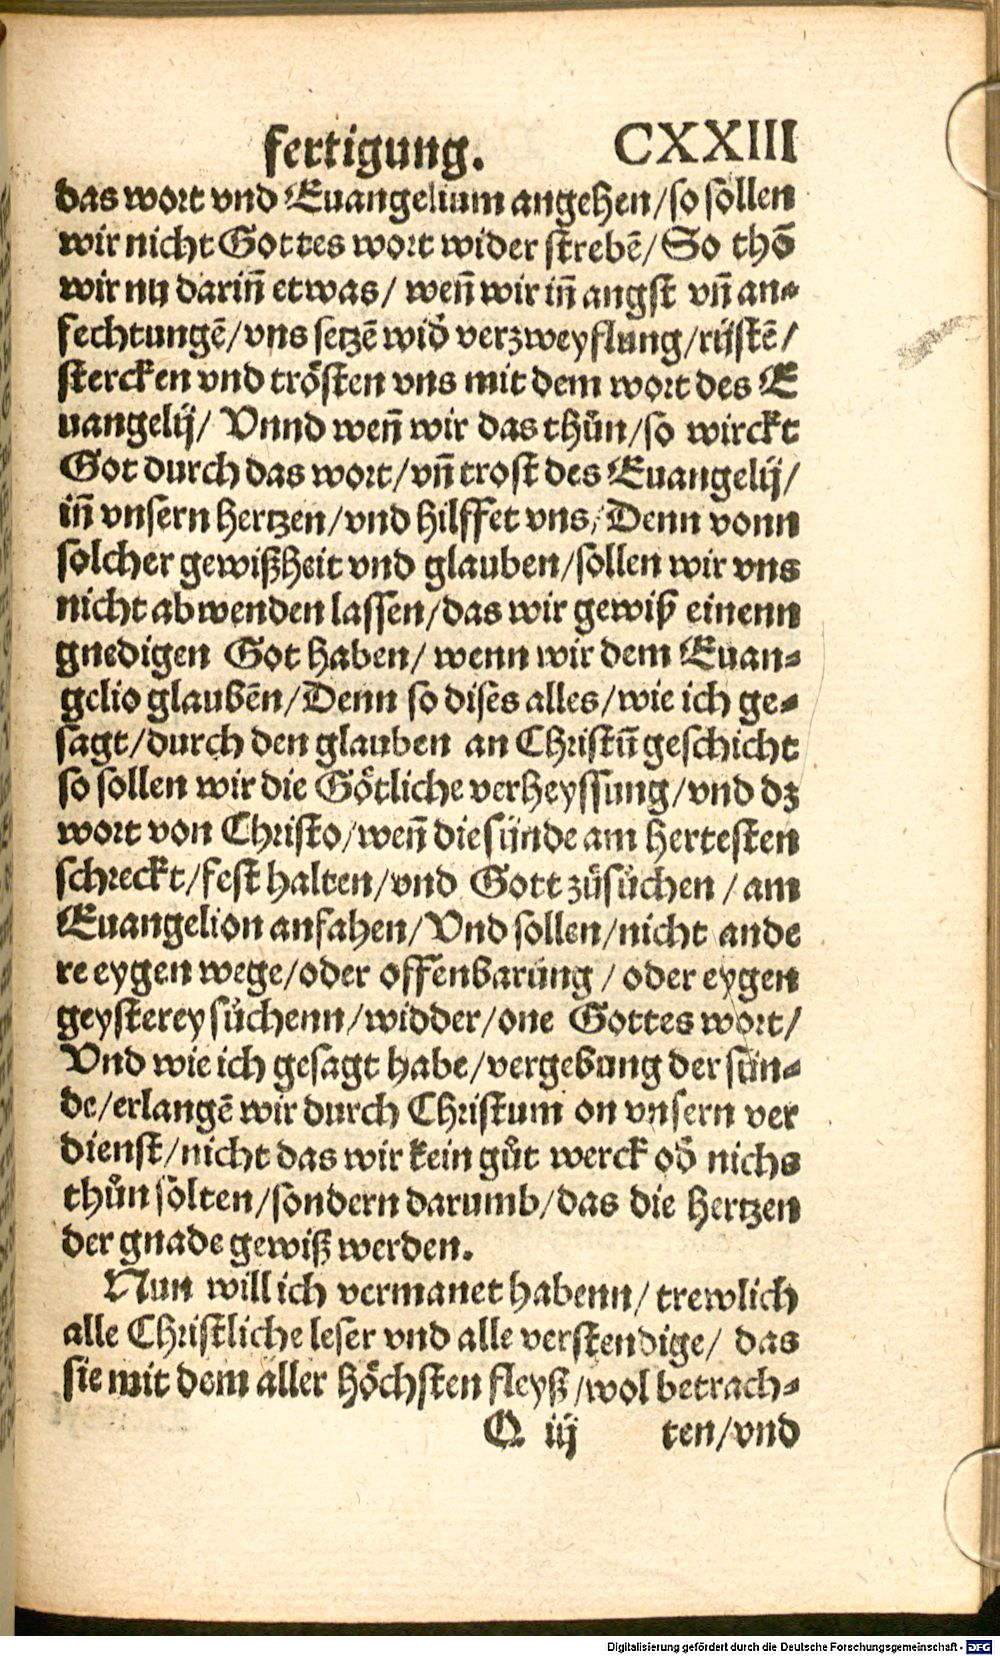 fertigung. CXXIII
das wort vnd Euangelium angehen/so sollen
wir nicht Gottes wort wider strebē/ So thō
wir nu dariñ etwas/ weñ wir iñ angst vñ an-
fechtungē/vns setzē wid̕ verzweyflung/rüstē/
stercken vnd trösten vns mit dem wort des E
uangelij/ Vnnd weñ wir das thůn/so wirckt
Got durch das wort/vñ trost des Euangelij/
iñ vnsern hertzen/vnd hilffet vns/Denn vonn
solcher gewißheit vnd glauben/sollen wir vns
nicht abwenden lassen/das wir gewiß einenn
gnedigen Got haben/ wenn wir dem Euan-
gelio glaubēn/Denn so dises alles/wie ich ge-
sagt/durch den glauben an Christū geschicht
so sollen wir die Götliche verheyssung/vnd dz
wort von Christo/weñ die sünde am hertesten
schreckt/fest halten/vnd Gott zůsůchen/am
Euangelion anfahen/Vnd sollen/nicht ande
re eygen wege/oder offenbarung/oder eygen
geysterey sůchenn/widder/one Gottes wort/
Vnd wie ich gesagt habe/vergebung der sün-
de/erlangē wir durch Christum on vnsern ver
dienst/nicht das wir kein gůt werck od̕ nichs
thůn solten/sondern darumb/das die hertzen
der gnade gewiß werden.
Nun will ich vermanet habenn/trewlich
alle Christliche leser vnd alle verstendige/ das
sie mit dem aller höchsten fleyß/wol betrach-
Q iij ten/vnd
Digitalisierung gefördert durch die Deutsche Forschungsgemeinschaft - DFG